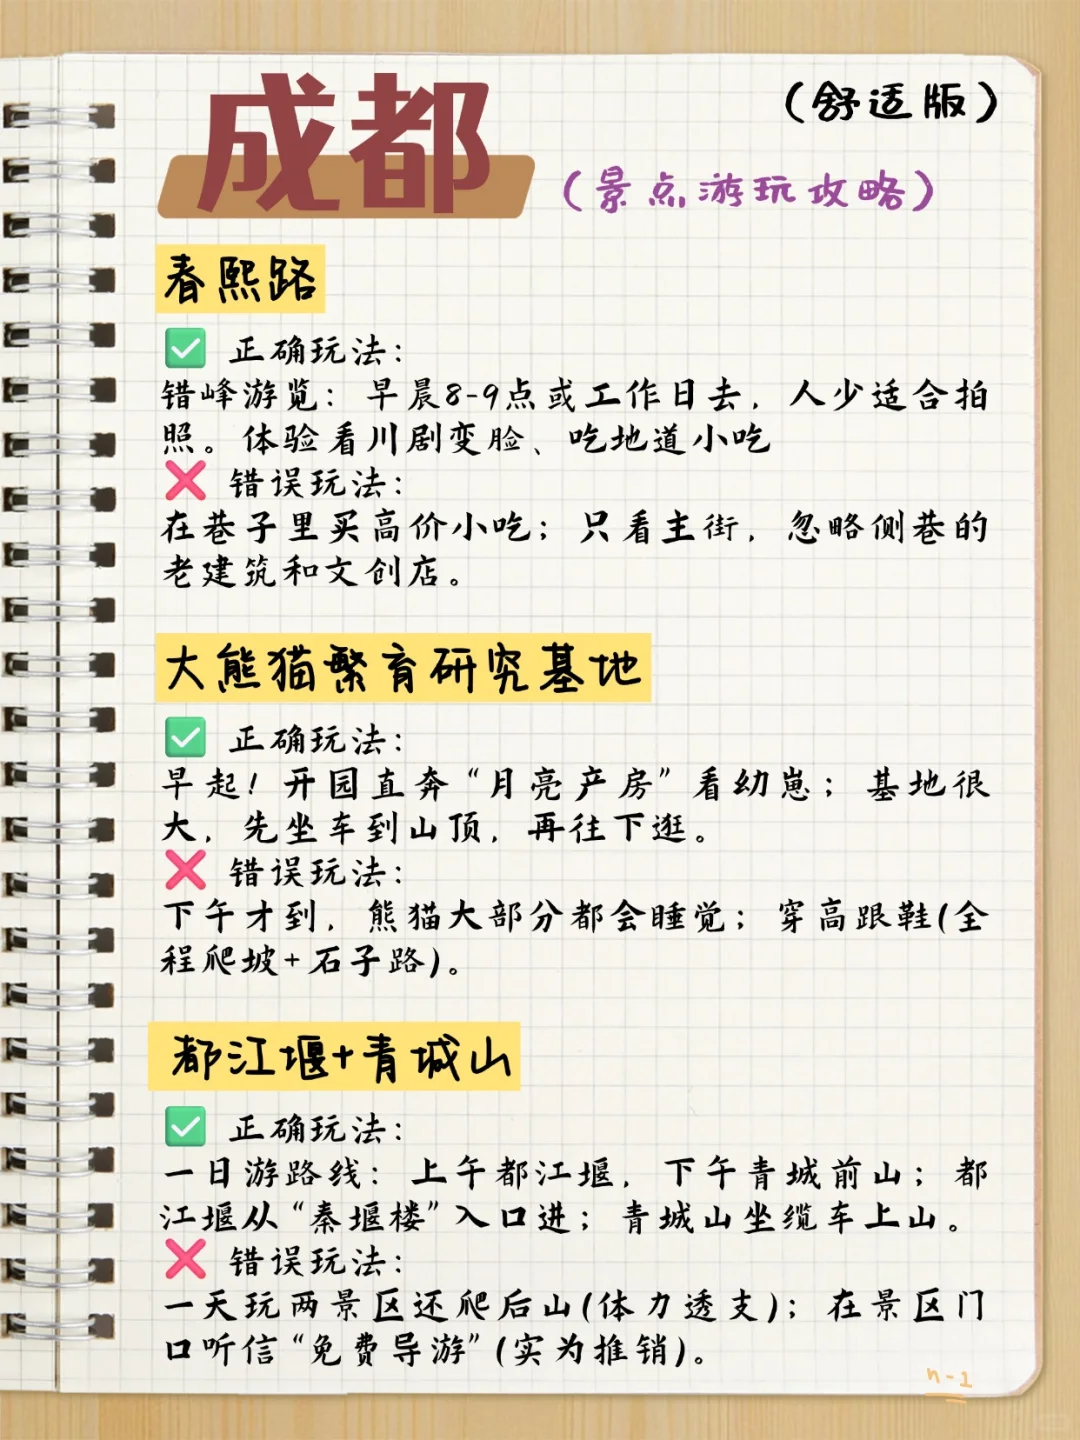 成都
（舒适版）
（景点游玩攻略）
春熙路
✅ 正确玩法：
错峰游览：早晨8-9点或工作日去，人少适合拍
照。体验看川剧变脸、吃地道小吃
❌ 错误玩法：
在巷子里买高价小吃；只看主街，忽略侧巷的
老建筑和文创店。
大熊猫繁育研究基地
✅ 正确玩法：
早起！开园直奔“月亮产房”看幼崽；基地很
大，先坐车到山顶，再往下逛。
❌ 错误玩法：
下午才到，熊猫大部分都会睡觉；穿高跟鞋(全
程爬坡+石子路)。
都江堰+青城山
✅ 正确玩法：
一日游路线：上午都江堰，下午青城前山；都
江堰从“秦堰楼”入口进；青城山坐缆车上山。
❌ 错误玩法：
一天玩两景区还爬后山(体力透支)；在景区门
口听信“免费导游”(实为推销)。
n-1